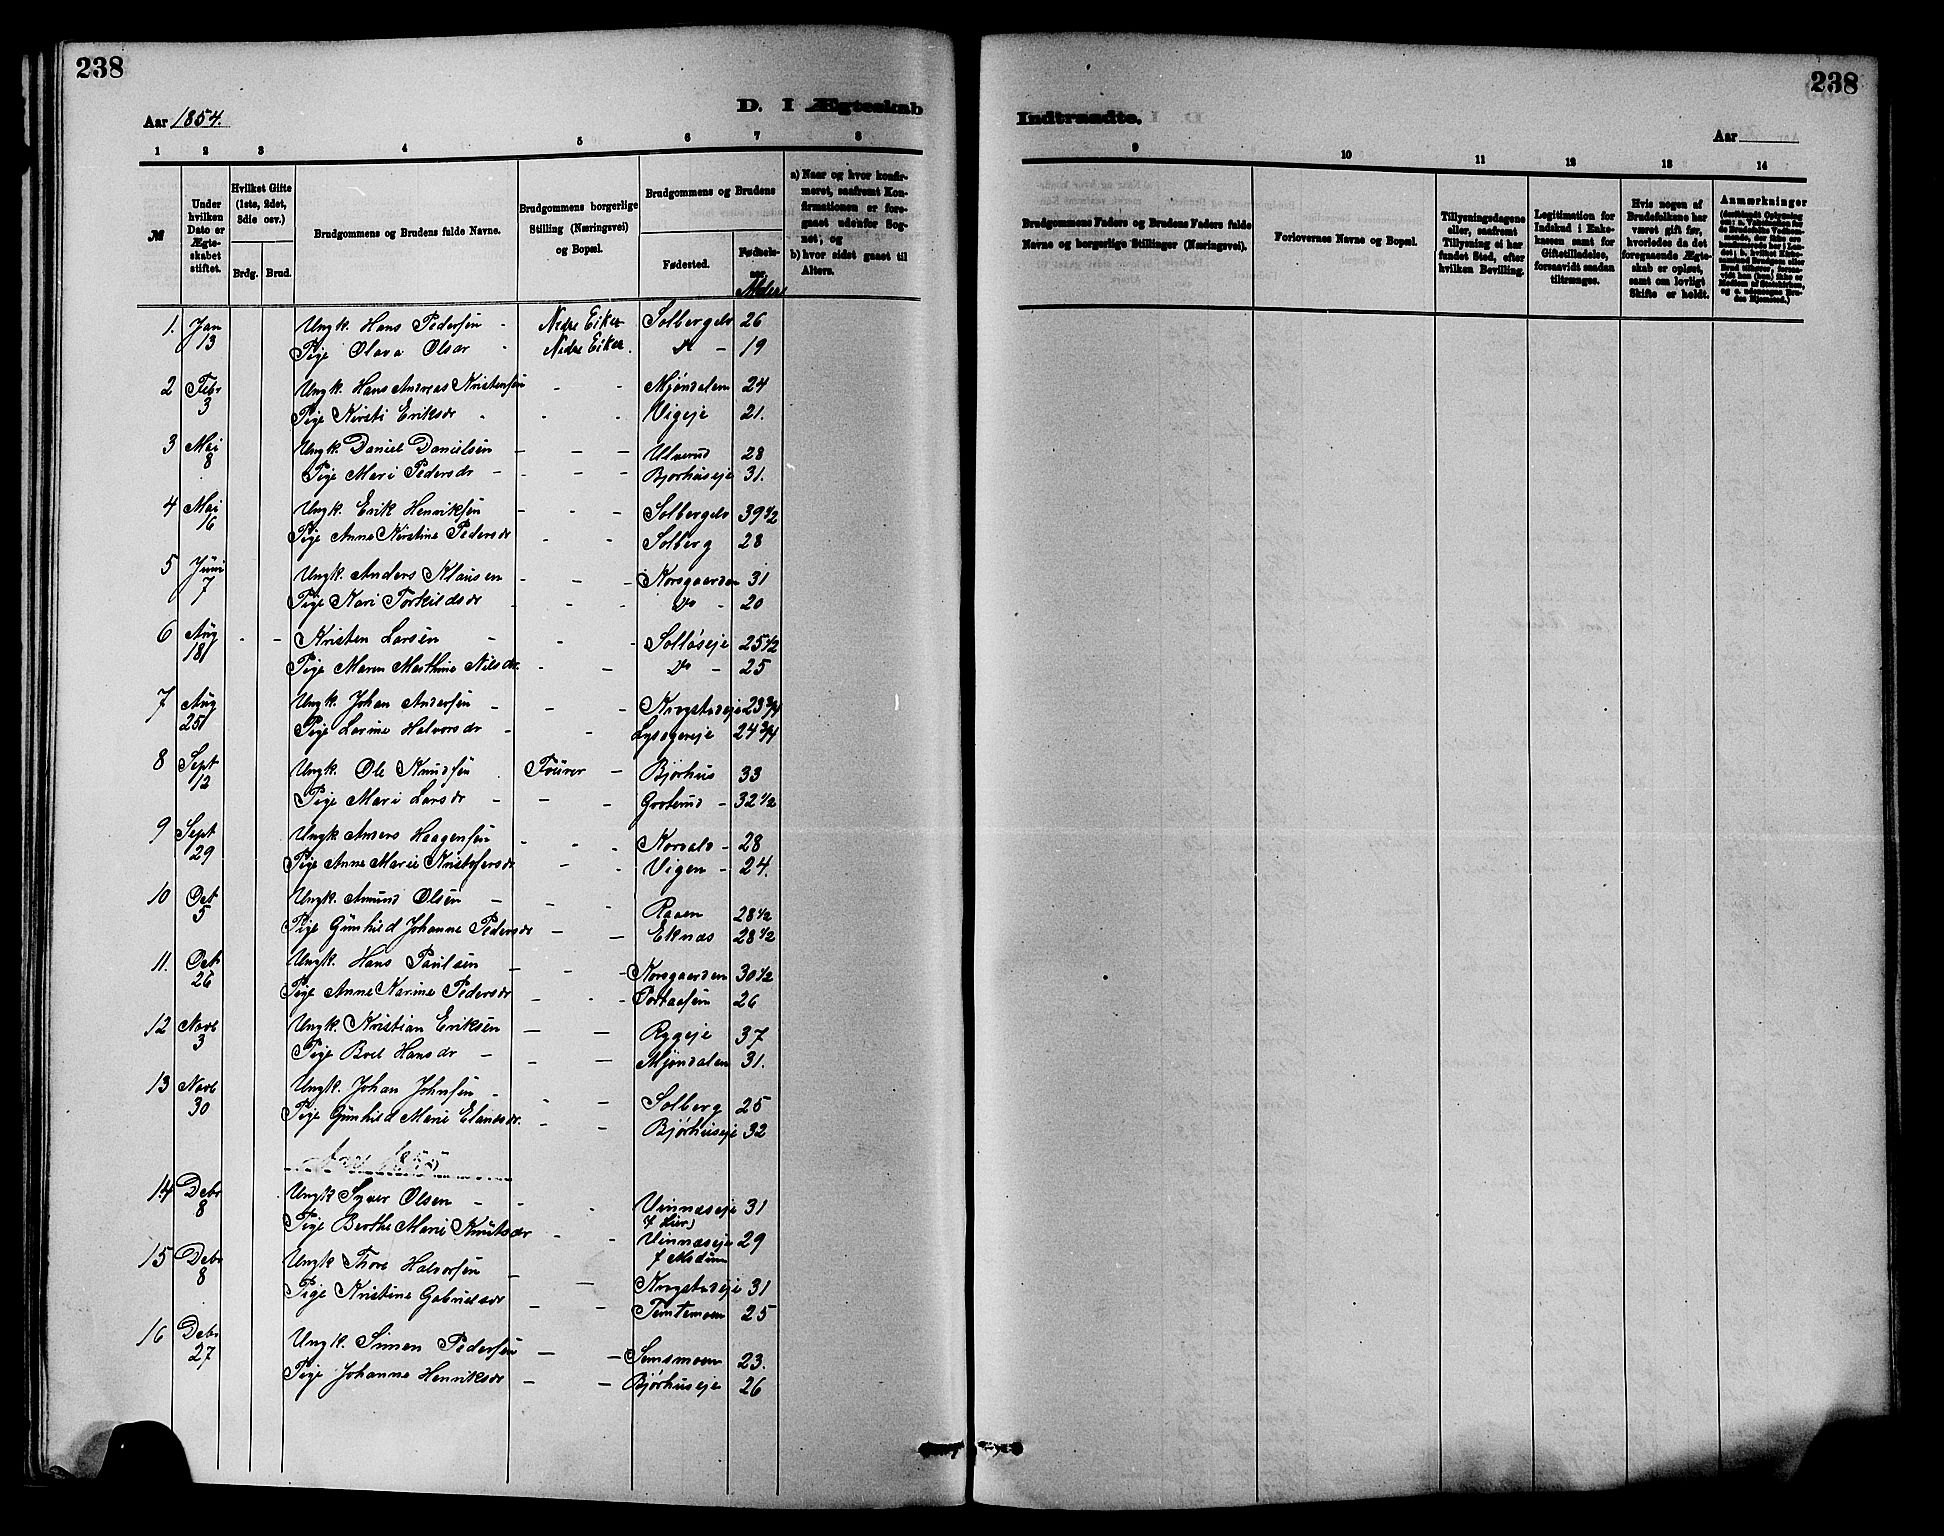 238
Aar 1854.
D. I Ægteskab
1 2 3 4 5 6 7 8
№
Under hvilken Dato er Ægteskabet stiftet.
Hvilket Gifte (1ste, 2det, 3die osv.)
Brdg. Brud.
Brudgommens og Brudens fulde Navne.
Brudgommens borgerlige Stilling (Næringsvei) og Bopæl.
Brudgommens og Brudens
Fødested.
Fødselsaar.
Alder
a) Naar og hvor konfirmeret, saafremt Konfirmationen er foregaaet udenfor Sognet; og
b) hvor sidst gaaet til Alters.
1. Jan 13 Ungk. Hans Pedersen - Nedre Eiker Solbergelv 26
Pige Olava Olsdr - Nedre Eiker. Do - 19
2 Febr 3 Ungk. Hans Andreas Kristensen - - Mjøndalen 24
Pige Kirsti Eriksdr - - - Vigeje 21.
3 Mai 8 Ungk. Daniel Danielsen - - - Ulverud 28
Pige Mari Pedersdr - - - - Bjørhuseje 31.
4 Mai 16 Ungk. Erik Henriksen - - - Solbergelv 39 1/2
Pige Anne Kirstine Pedersdr - - Solberg 28
5 Juni 7 Ungk. Anders Klausen - - - Korsgaarden 31
Pige Kari Torkildsdr - - - Do - 20
6 Aug 18 - - Kristen Larsen - - - Solløseje 25 1/2
Pige Maren Mathine Nilsdr. - - Do - 25
7 Aug 25 Ungk. Johan Andersen - - - Krogstadeje 23 3/4
Pige Larine Halvorsdr - - Lysagereje 24 3/4
8 Sept 12 Ungk. Ole Knudsen - - Bjørhus 33
Pige Mari Larsdr - - - 32 1/2
9 Sept 29 Ungk. Anders Haagensen - - - Korvald - 28
Pige Anne Marie Kristofersdr - - Vigen - 24.
10 Oct 5 Ungk. Amund Olsen - - - Raaen 28 1/2
Pige Gunhild Johanne Pedersdr - - Eknæs 28 1/2
11. Oct 26 Ungk. Hans Paulsen - - - Korsgaarden 30 1/2
Pige Anne Karine Pedersdr - - - 26
12 Novb 3 Ungk. Kristian Eriksen - - Rygeje 37
Pige Boel Hansdr - - - Mjøndalen 31.
13 Novb 30 Ungk. Johan Johnsen - - - Solberg 25
Pige Gunhild Marie - - Bjørhuseje 32
Aar 1855
14 Debr 8 Ungk Syver Olsen - - - Vinnæseje 31
f Lier)
Pige Berthe Marie Knutsdr - - Vinnæseje 29
f Modum
15 Debr 8 Ungk Thore Halvorsen - - Krogstadeje 31
Pige Kristine Gabrielsdr - - Temtemoen 25
16 Debr 27 Ungk. Simen Pedersen - - Semsmoen 23.
Pige Johanne Henriksdr - - Bjørhuseje 26
238
Indtraadte.
Aar
9 10 11 12 13 14
Brudgommens Faders og Brudens Faders fulde Navne og borgerlige Stillinger (Næringsvei).
Forlovernes Navne og Bopæl.
Tillysningsdagene eller, saafremt Tillysning ei har fundet Sted, efter hvilken Bevilling.
Legitimation for Indskud i Enkekassen samt for Giftetilladelse, forsaavidt saadan tiltrænges.
Hvis nogen af Brudefolkene har været gift før, hvorledes da det foregaaende Ægteskab er opløst, samt om lovligt Skifte er holdt.
Anmærkninger